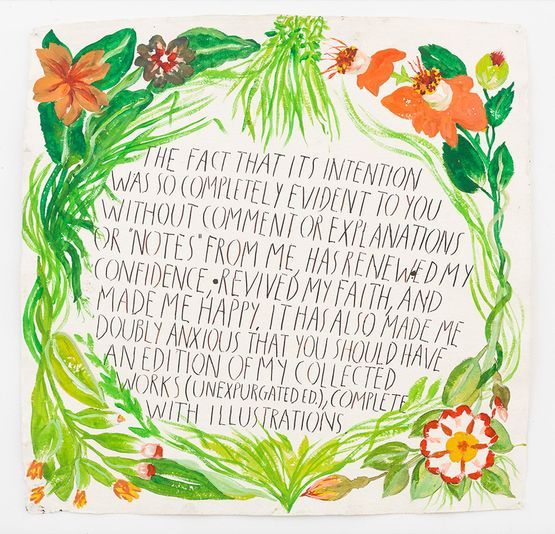 THE FACT THAT ITS INTENTION
WAS SO COMPLETELY EVIDENT TO YOU
WITHOUT COMMENT OR EXPLANATIONS
OR "NOTES" FROM ME, HAS RENEWED MY
CONFIDENCE, REVIVED MY FAITH, AND
MADE ME HAPPY. IT HAS ALSO MADE ME
DOUBLY ANXIOUS THAT YOU SHOULD HAVE
AN EDITION OF MY COLLECTED
WORKS (UNEXPURGATED ED.), COMPLETE
WITH ILLUSTRATIONS